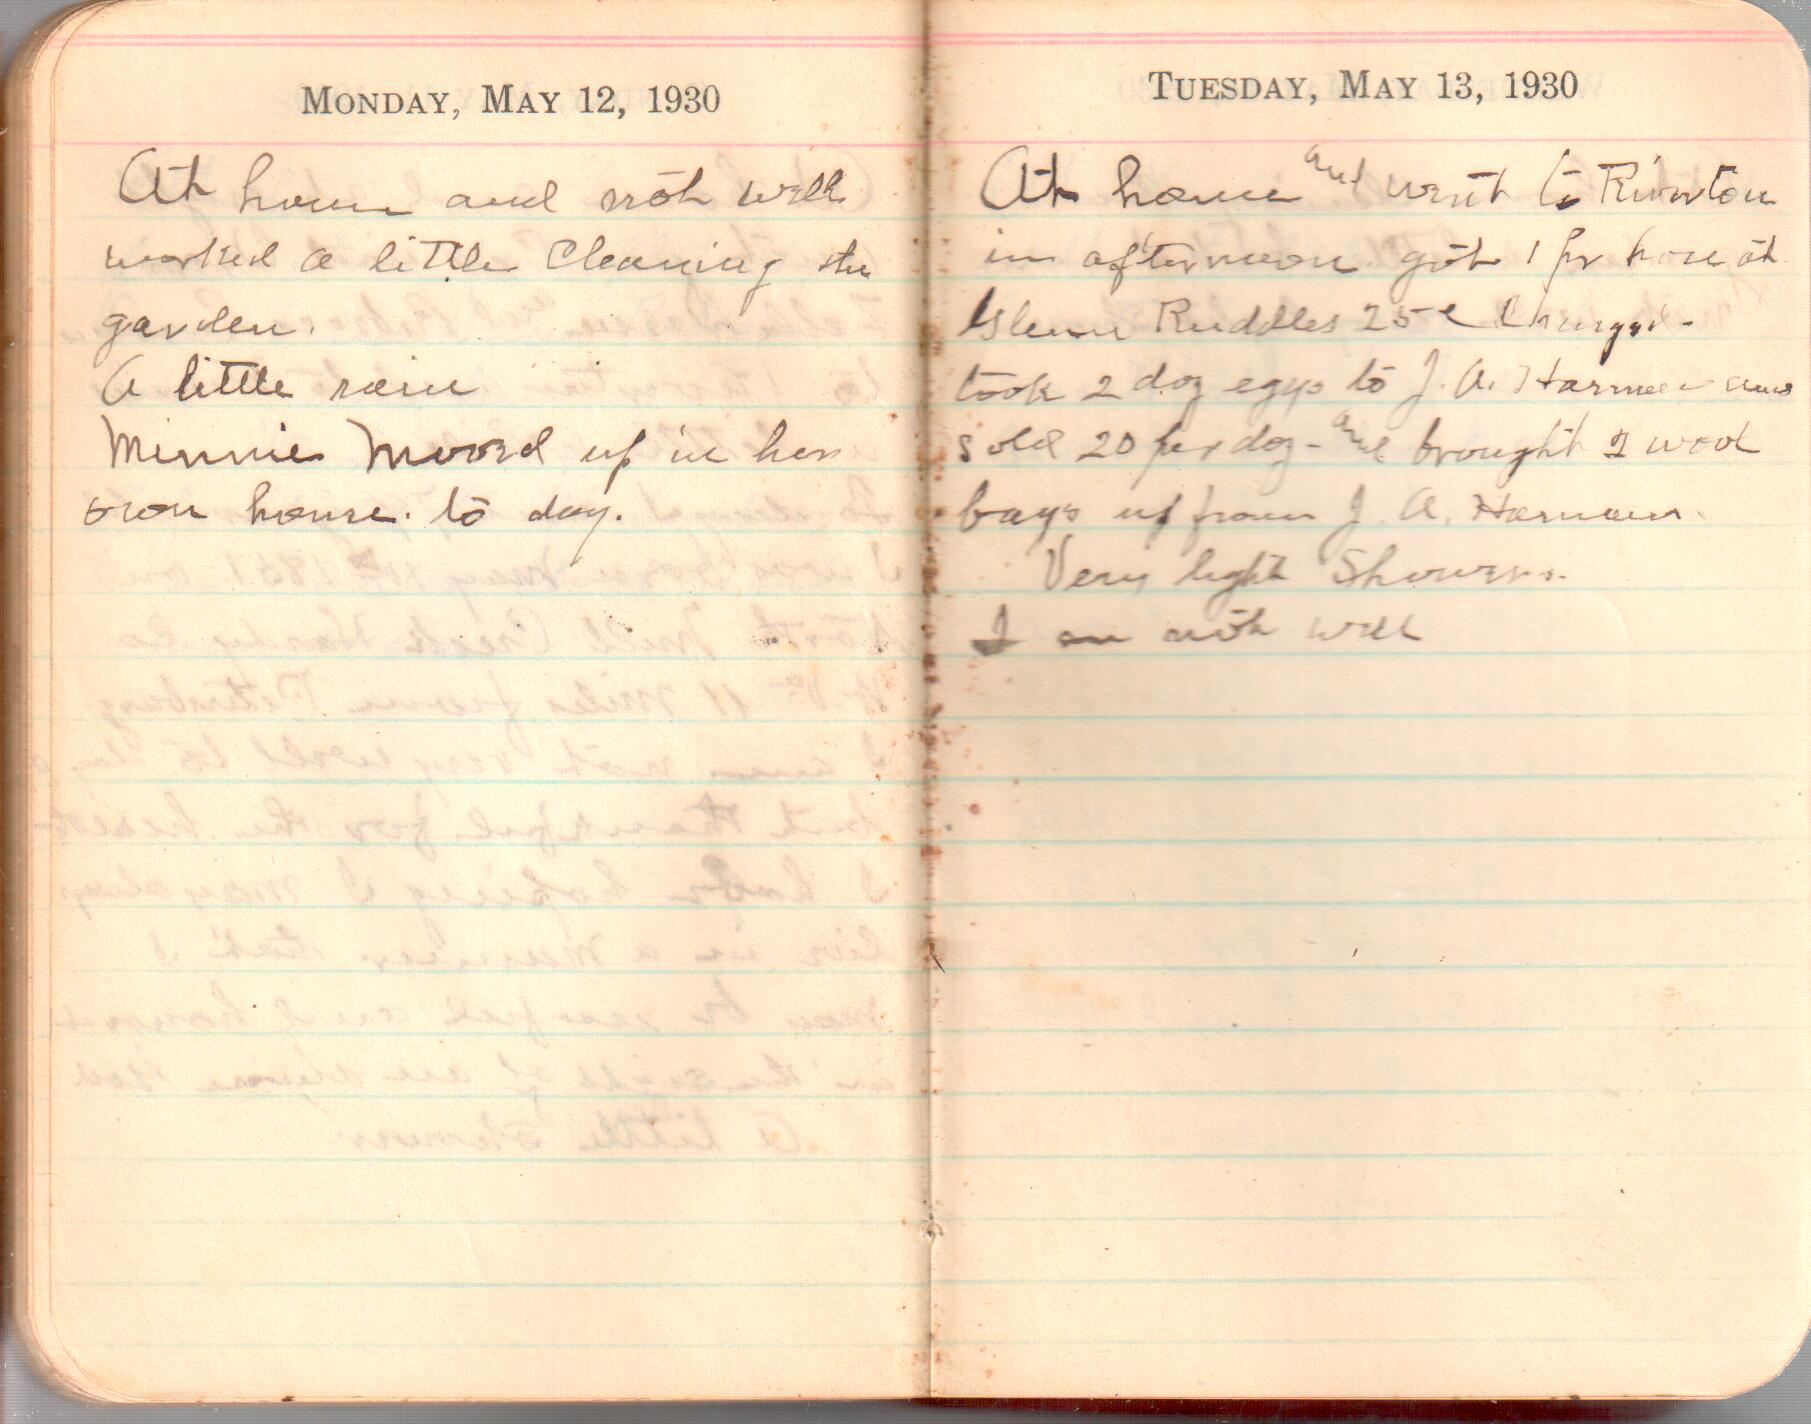 Monday, May 12, 1930
At home and not well
worked a little Cleaning the
garden.
A little rain
Minnie Moovd up in her
own house. to day.
Tuesday, May 13, 1930
At home and went to Riverton
in afternoon got 1 pr hose at
Glenn Ruddles 25¢
took 2 doz eggs to J. A. Harman and
sold 20 per doz - and brought 2 wool
bags up from J. A. Harman.
Very light Showers.
I am not well